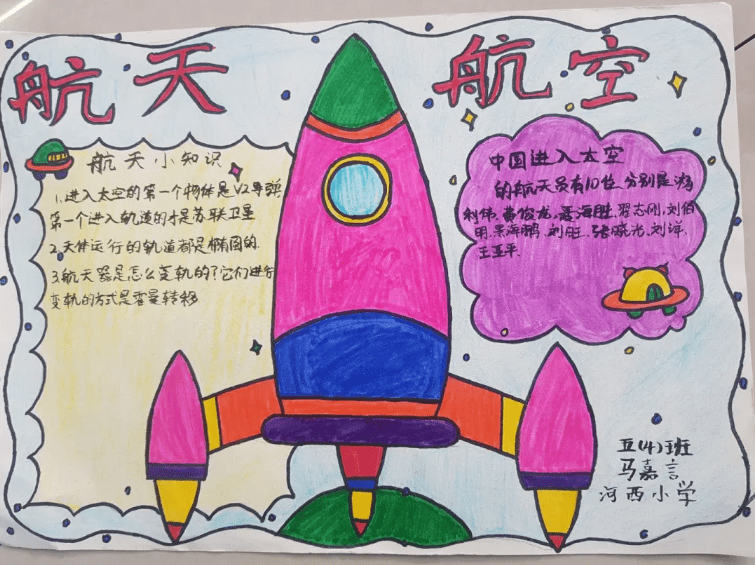 航天 航空
航天小知识
1.进入太空的第一个物体是V2导弹
第一个进入轨道的才是苏联卫星
2.天体运行的轨道都是椭圆的.
3.航天器是怎么变轨的?它们进行
变轨的方式是霍曼转移
中国进入太空
的航天员有10位.分别是:杨
利伟.费俊龙.聂海胜.翟志刚.刘伯
明.景海鹏.刘旺.张晓光.刘洋.
王亚平.
五(4)班
马嘉言
河西小学